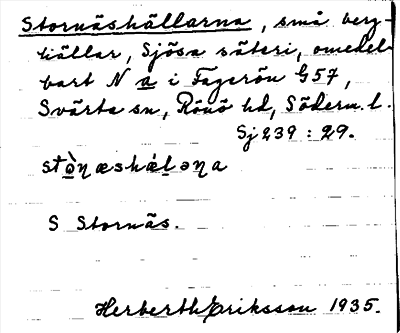 Stornäshällarna, små berg-
hällar, Sjösa säteri, omedel-
bart N a i Fagerön G57,
Svärta sn, Rönö hd, Söderm. l.
Sj 239 : 29.
S Stornäs.
Herberth Eriksson 1935.